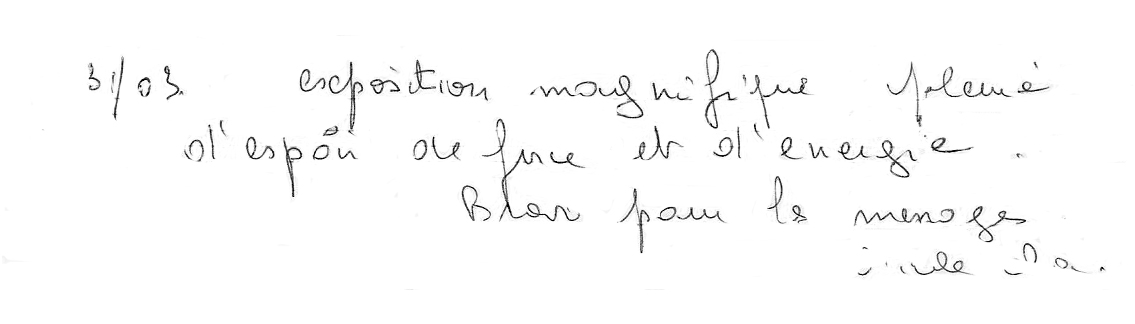 31/03. exposition magnifique pleine
d'espoir de force et d'energie.
Bravo pour les messages